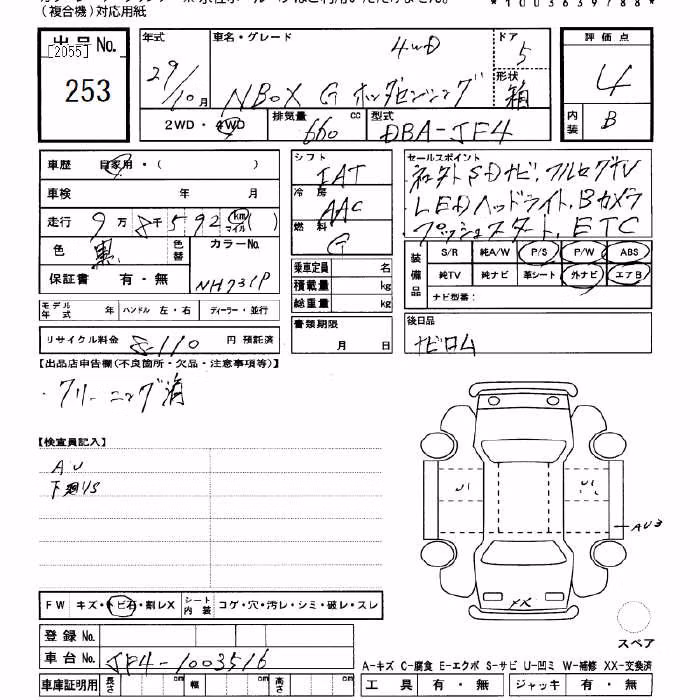 (複合機)対応用紙
*1003639788*
出品No. 年式 車名・グレード ドア 評価点
[2055] 4WD 5
253 29/10月 NBOX G ホンダセンシング 形状 箱 4
2WD・4WD 排気量 660 cc 型式 DBA-JF4 内装 B
車歴 自家用・( )
車検 年 月
走行 9万8千592 km マイル ( )
色 黒 色替 カラーNo.
保証書 有・無 NH731P
モデル年式 年 ハンドル 左・右 ディーラー・並行
リサイクル料金 8-110 円 預託済
シフト IAT
冷房 AAC
燃料 G
乗車定員 名
積載量 kg
総重量 kg
書類期限
月 日
セールスポイント
社外SDナビ,フルセグTV
LEDヘッドライト,Bカメラ
プッシュスタート,ETC
装備品 S/R 純A/W P/S P/W ABS
純TV 純ナビ 革シート 外ナビ エアB
ナビ型番:
後日品
ナビロム
【出品店申告欄(不良箇所・欠品・注意事項等)】
・クリーニング済
【検査員記入】
AU
下廻りS
U1
AU3
FX
スペア
FW キズ・トビ石・割レX シート内装 コゲ・穴・汚レ・シミ・破レ・スレ
登録No.
車台No. JF4-1003516
車庫証明用 長さ cm 幅 cm 高さ cm
A-キズ C-腐食 E-エクボ S-サビ U-凹ミ W-補修 XX-交換済
工具 有・無 ジャッキ 有・無